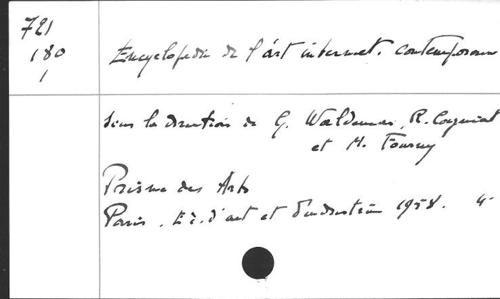 721
180
1
Encyclopédie de l'art internat. contemporain
sous la direction de G. Waldemar, R. Cogniat
et M. Fourny
Prisme des Arts
Paris. Ed. d'art et d'industrie 1958. 4°